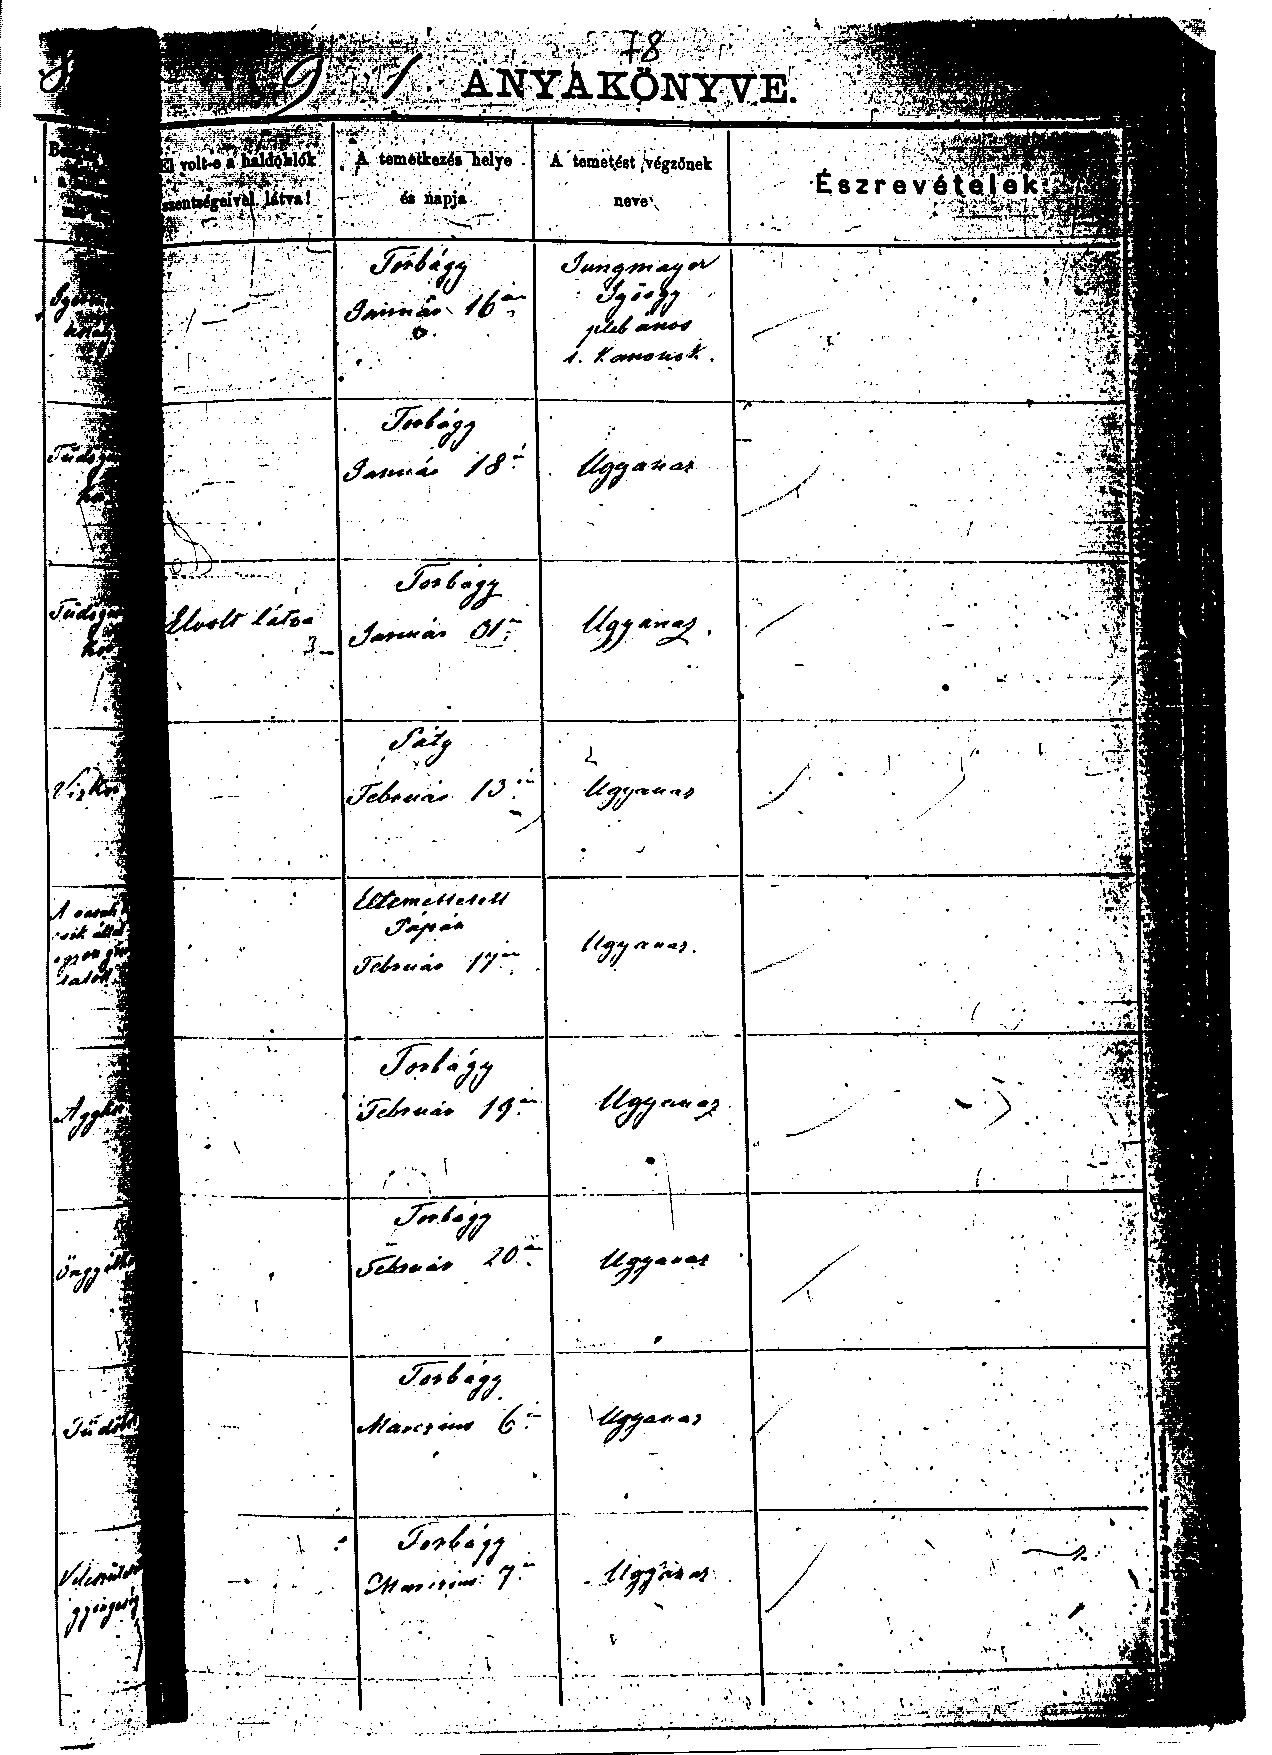 78
ANYAKÖNYVE.
El volt-e a haldoklók
szentségeivel látva?
A temetkezés helye
és napja
A temetést végzőnek
neve
Észrevételek
Torbágy
Január 16án
Jungmayer
György
plebános
s. Kanonok.
Torbágy
Január 18án
Ugyanaz
Elvolt látva
Torbágy
Január 31én
Ugyanaz.
Páty
Február 13án
Ugyanaz
Eltemettetett
Pápán
Február 17én
Ugyanaz.
Torbágy
Február 19én
Ugyanaz
Torbágy
Február 20án
Ugyanaz
Torbágy
Marczius 6án
Ugyanaz
Torbágy
Marczius 7én
Ugyanaz